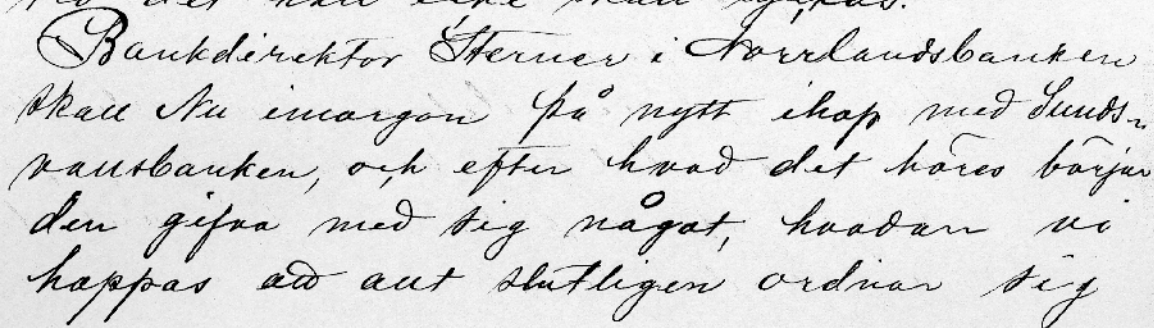 det icke skall
Bankdirektör Sterner i Norrlandsbanken
skall Nu imorgon på nytt ihop med Sunds-
vallsbanken, och efter hvad det höres börjar
den gifva med sig något, hvadan vi
hoppas att allt slutligen ordnar sig